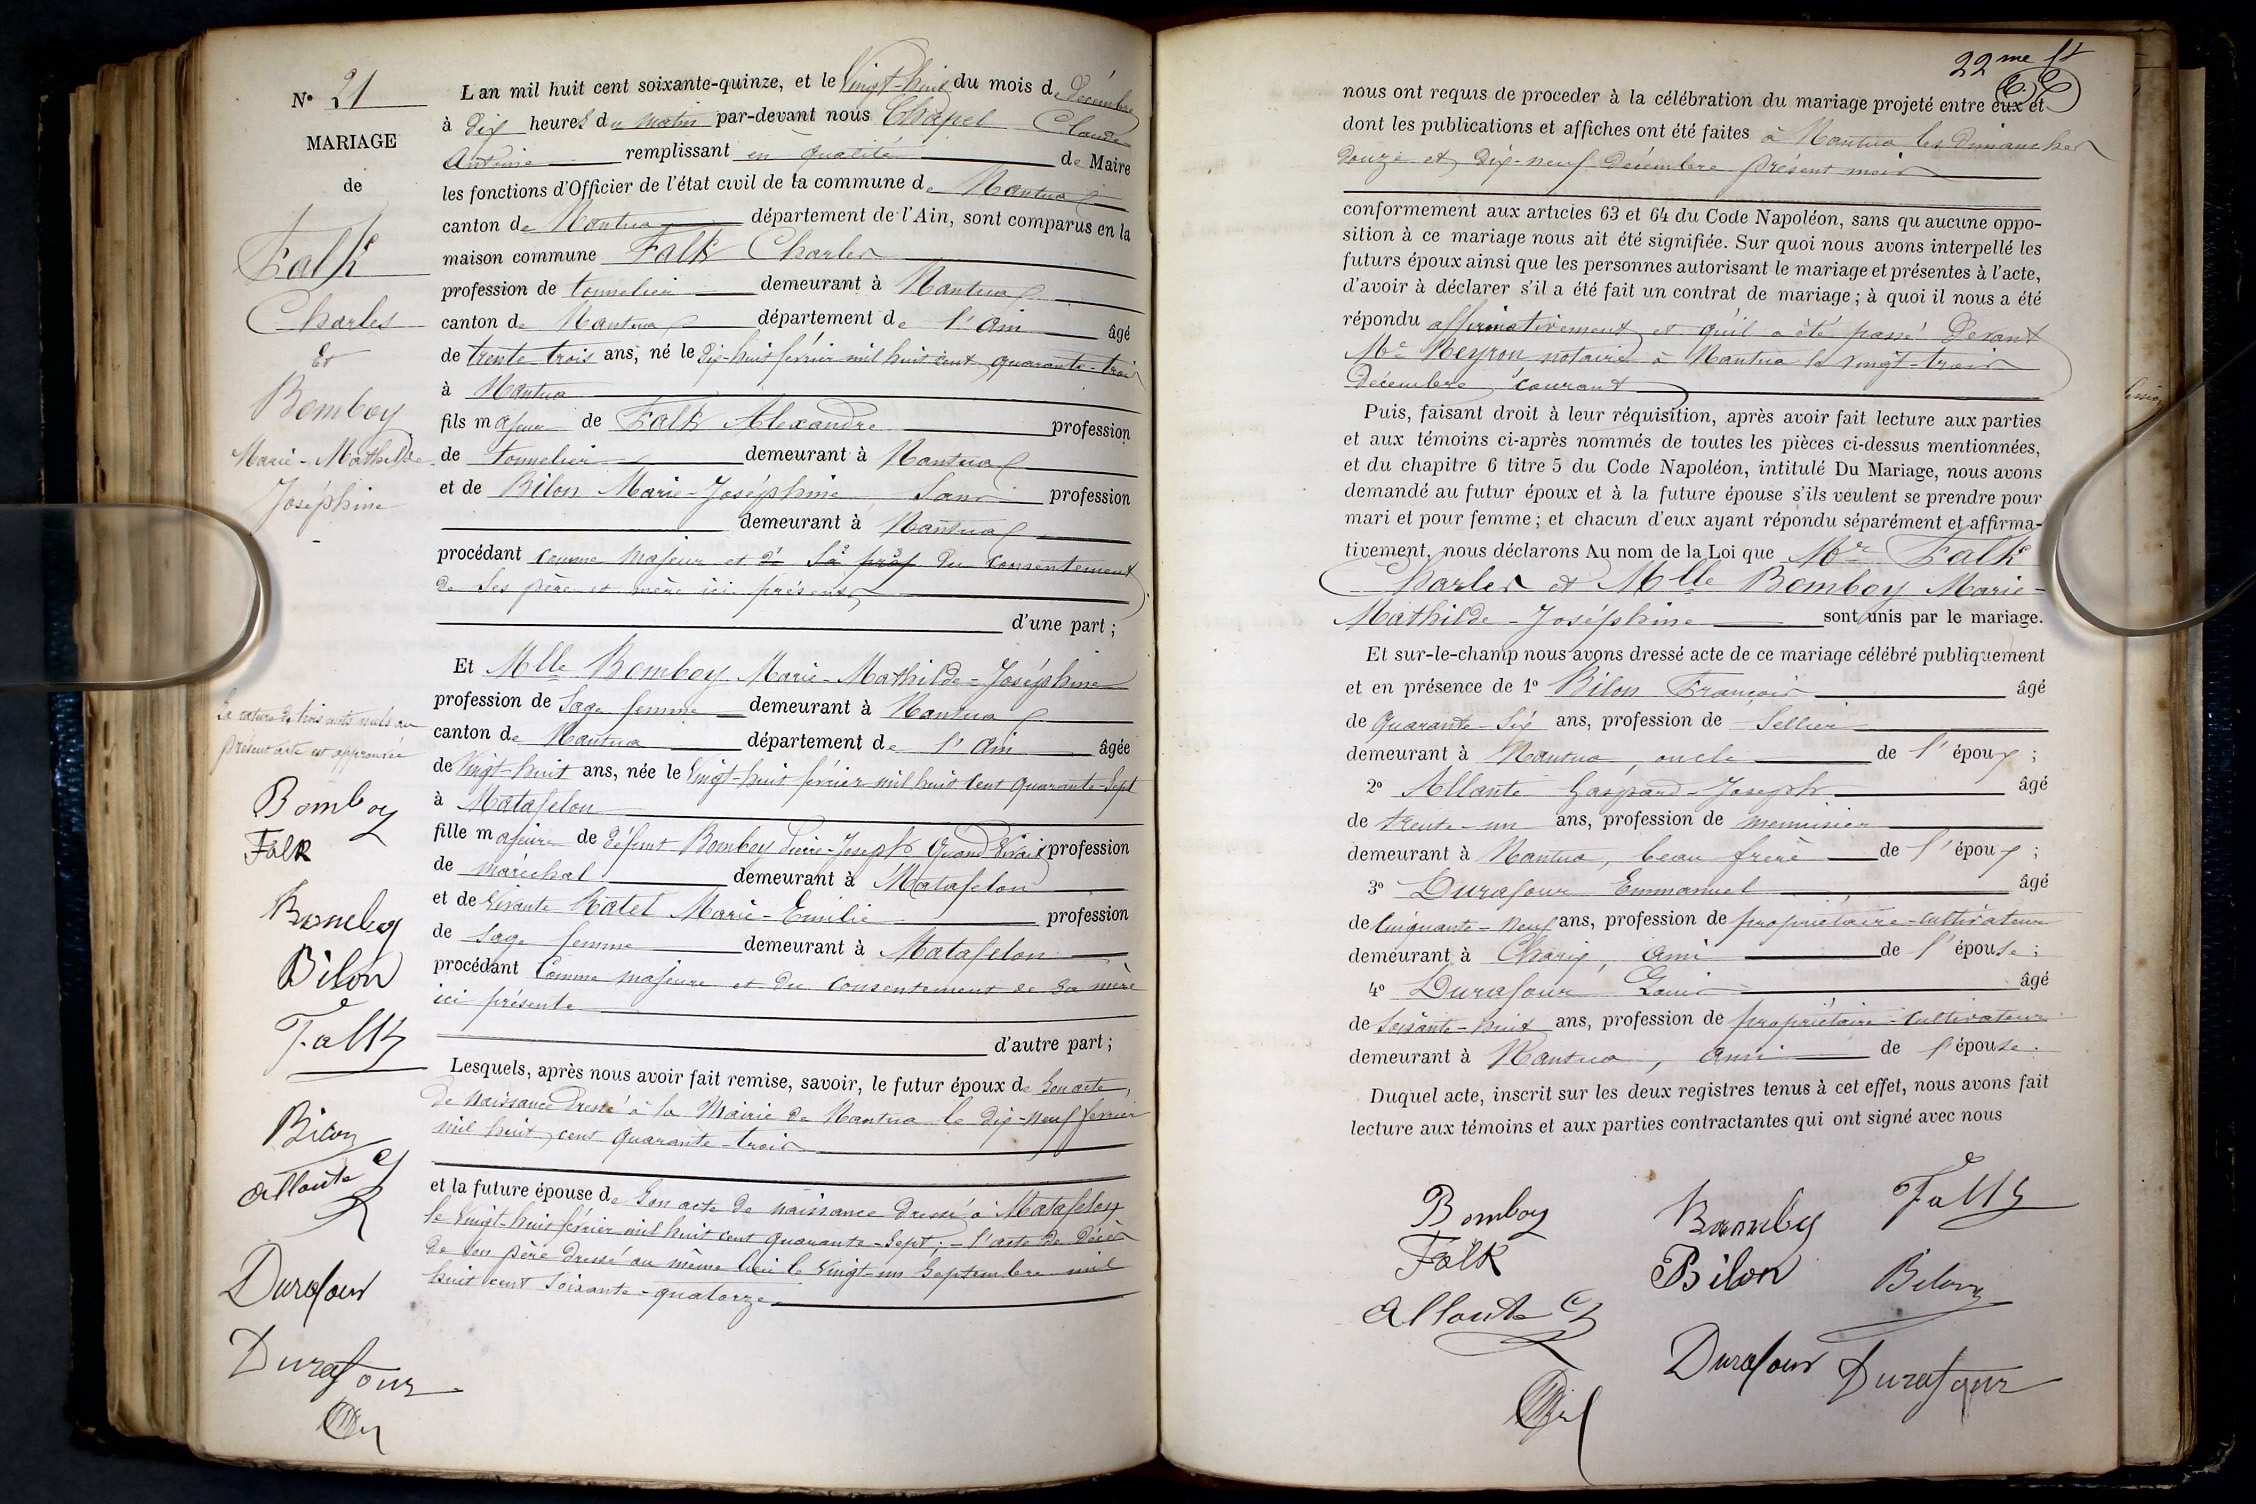 N° 21
MARIAGE
de
Falk
Charles
Et
Bomboy
Marie-Mathilde
Joséphine
La rature de trois mots nuls au
présent acte est approuvée
Bomboy
Falk
Bomboy
Bilon
Falk
Bilon
Allante
Durafour
Durafour
L'an mil huit cent soixante-quinze, et le vingt-huit du mois de Décembre
à dix heures du matin par-devant nous Chapel Claude
Antoine remplissant en qualité de Maire
les fonctions d'Officier de l'état civil de la commune de Nantua
canton de Nantua département de l'Ain, sont comparus en la
maison commune Falk Charles
profession de tonnelier demeurant à Nantua
canton de Nantua département de l'Ain âgé
de trente trois ans, né le dix-huit février mil huit cent quarante-trois
à Nantua
fils majeur de Falk Alexandre profession
de tonnelier demeurant à Nantua
et de Bilon Marie-Joséphine Sans profession
demeurant à Nantua
procédant comme majeur et du consentement
de ses père et mère ici présens
d'une part ;
Et Mlle Bomboy Marie-Mathilde-Joséphine
profession de Sage femme demeurant à Nantua
canton de Nantua département de l'Ain âgée
de vingt-huit ans, née le vingt-huit février mil huit cent quarante-sept
à Matafelon
fille majeure de défunt Bomboy Pierre-Joseph quand vivait profession
de maréchal demeurant à Matafelon
et de vivante Hatet Marie-Emilie profession
de Sage femme demeurant à Matafelon
procédant Comme majeure et du consentement de sa mère
ici présente
d'autre part ;
Lesquels, après nous avoir fait remise, savoir, le futur époux de Son acte
de naissance dressé à la Mairie de Nantua le dix-neuf février
mil huit cent quarante-trois
et la future épouse de Son acte de naissance dressé à Matafelon
le vingt-huit février mil huit cent quarante-sept ; - l'acte de décès
de son père dressé au même lieu le vingt-un Septembre mil
huit cent soixante-quatorze.
22me ft
nous ont requis de proceder à la célébration du mariage projeté entre eux et
dont les publications et affiches ont été faites à Nantua les Dimanches
douze et dix-neuf décembre présent mois
conformement aux articles 63 et 64 du Code Napoléon, sans qu'aucune oppo-
sition à ce mariage nous ait été signifiée. Sur quoi nous avons interpellé les
futurs époux ainsi que les personnes autorisant le mariage et présentes à l'acte,
d'avoir à déclarer s'il a été fait un contrat de mariage ; à quoi il nous a été
répondu affirmativement et qu'il a été passé devant
Me Neyron notaire à Nantua le vingt-trois
décembre courant
Puis, faisant droit à leur réquisition, après avoir fait lecture aux parties
et aux témoins ci-après nommés de toutes les pièces ci-dessus mentionnées,
et du chapitre 6 titre 5 du Code Napoléon, intitulé Du Mariage, nous avons
demandé au futur époux et à la future épouse s'ils veulent se prendre pour
mari et pour femme ; et chacun d'eux ayant répondu séparément et affirma-
tivement, nous déclarons Au nom de la Loi que Mr Falk
Charles et Mlle Bomboy Marie-
Mathilde-Joséphine sont unis par le mariage.
Et sur-le-champ nous avons dressé acte de ce mariage célébré publiquement
et en présence de 1° Bilon François âgé
de Quarante-six ans, profession de Sellier
demeurant à Nantua, oncle de l'époux ;
2° Allante Gaspard-Joseph âgé
de trente-un ans, profession de menuisier
demeurant à Nantua, beau frère de l'époux ;
3° Durafour Emmanuel âgé
de Cinquante-neuf ans, profession de propriétaire-cultivateur
demeurant à Charix, ami de l'épouse ;
4° Durafour Louis âgé
de Soixante-huit ans, profession de propriétaire-cultivateur
demeurant à Nantua, ami de l'épouse.
Duquel acte, inscrit sur les deux registres tenus à cet effet, nous avons fait
lecture aux témoins et aux parties contractantes qui ont signé avec nous
Bomboy Bomboy Falk
Falk Bilon Bilon
Allante Durafour Durafour